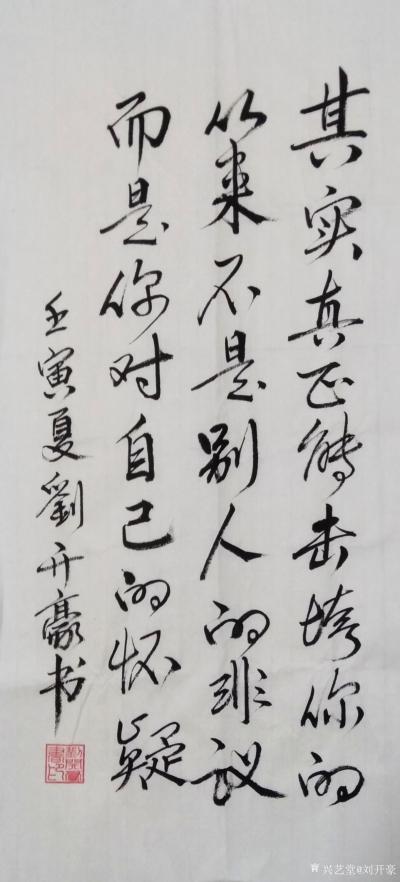 其实真正能击垮你的
从来不是别人的非议
而是你对自己的怀疑
壬寅夏劉开豪书
兴艺堂@刘开豪